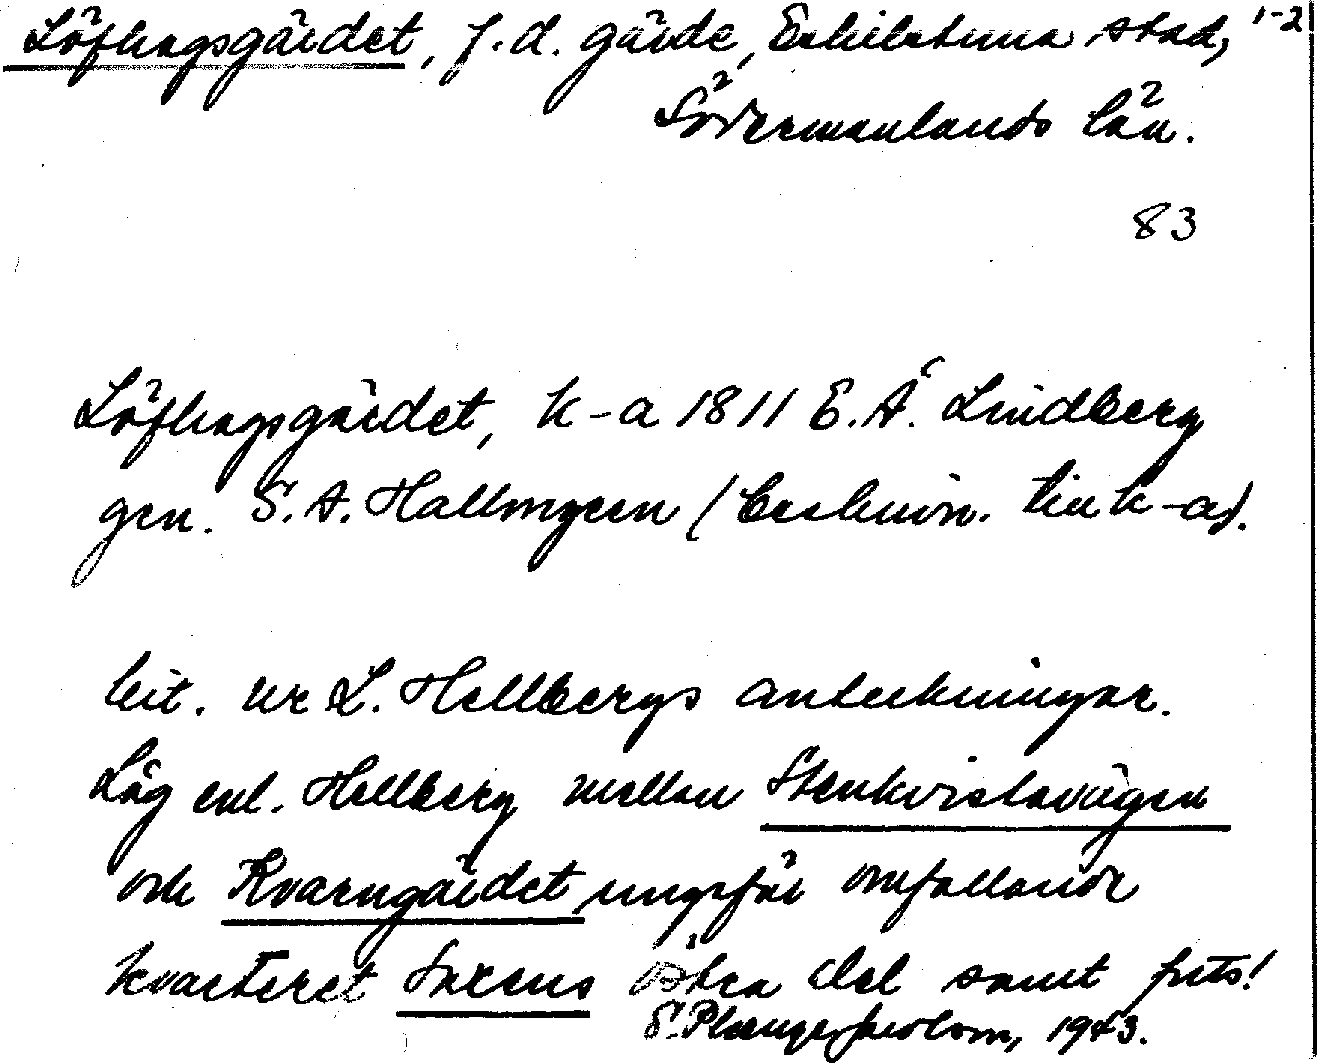 Löfhagsgärdet, f.d. gärde, Eskilstuna stad, 1-2
Södermanlands län.
83
Löfhagsgärdet, k-a 1811 E. Å. Lindberg
gen. S. A. Hallmgren (Beskrivn. till k-a).
Cit. ur L. Hellbergs anteckningar.
Låg enl. Hellberg mellan Stenkvistavägen
och Kvarngärdet ungefär omfattande
kvarteret Saxens östra del samt forts!
S. Plængerholm, 1943.